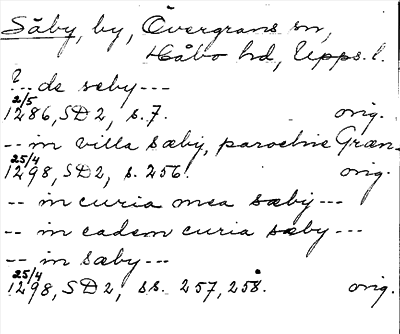 Säby, by, Övergrans sn,
Håbo hd, Upps. l.
?-- de seby ---
2/5
1286, SD 2, s. 7. orig.
-- in villa sæby, parochie Græn-
25/4
1298, SD 2, s. 256. orig.
-- in curia mea sæby ---
-- in eadem curia sæby ---
-- in sæby ---
25/4
1298, SD 2, ss. 257, 258. orig.